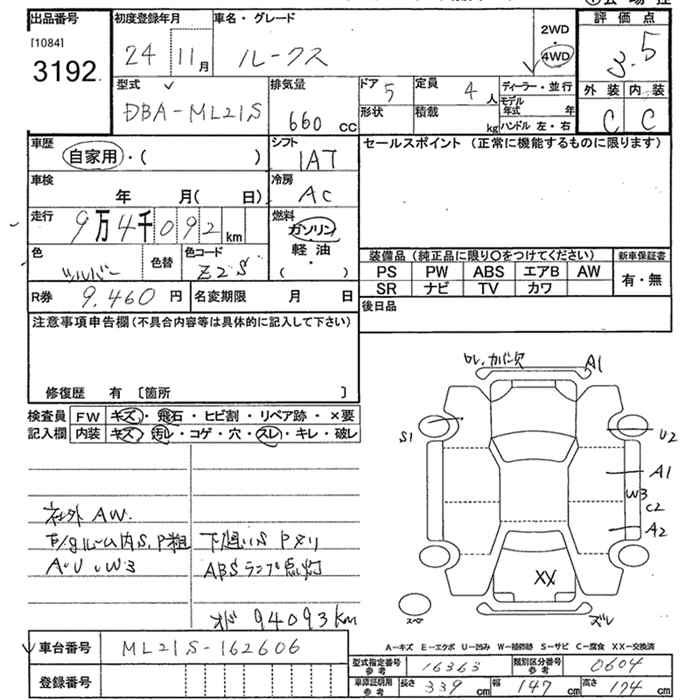 出品番号 初度登録年月 車名・グレード 2WD 評価点
[1084] 24 11月 ルークス 4WD 3.5
3192
型式 排気量 ドア 5 定員 4人 ディーラー・並行 外装 内装
DBA-ML21S 660 CC 形状 積載 kg モデル年式 年 C C
ハンドル 左・右
車歴 自家用・( ) シフト IAT セールスポイント (正常に機能するものに限ります)
車検 年 月( 日) 冷房 AC
走行 9万4千092 km 燃料 ガソリン
軽油
・( )
色 シルバー 色替 色コード Z2S 装備品 (純正品に限り〇をつけてください) 新車保証書
PS PW ABS エアB AW 有・無
SR ナビ TV カワ
R券 9.460円 名変期限 月 日 後日品
注意事項申告欄 (不具合内容等は具体的に記入して下さい)
修復歴 有 〔箇所 〕
検査員 FW キズ・飛石・ヒビ割・リペア跡・×要
記入欄 内装 キズ・汚レ・コゲ・穴・スレ・キレ・破レ
ワレ, カバー欠 A1
S1 U2
A1
W3
C2
A2
XX
スペ ズレ
社外 AW.
ルーム内S, P粗 下廻りS Pメリ
A・U・W3 ABSランプ点灯
94093km
A-キズ E-エクボ U-凹み W-補修跡 S-サビ C-腐食 XX-交換済
車台番号 ML21S-162606
登録番号
型式指定番号 参考 16363 類別区分番号 参考 0604
車庫証明用 参考 長さ 339 cm 幅 147 cm 高さ 174 cm